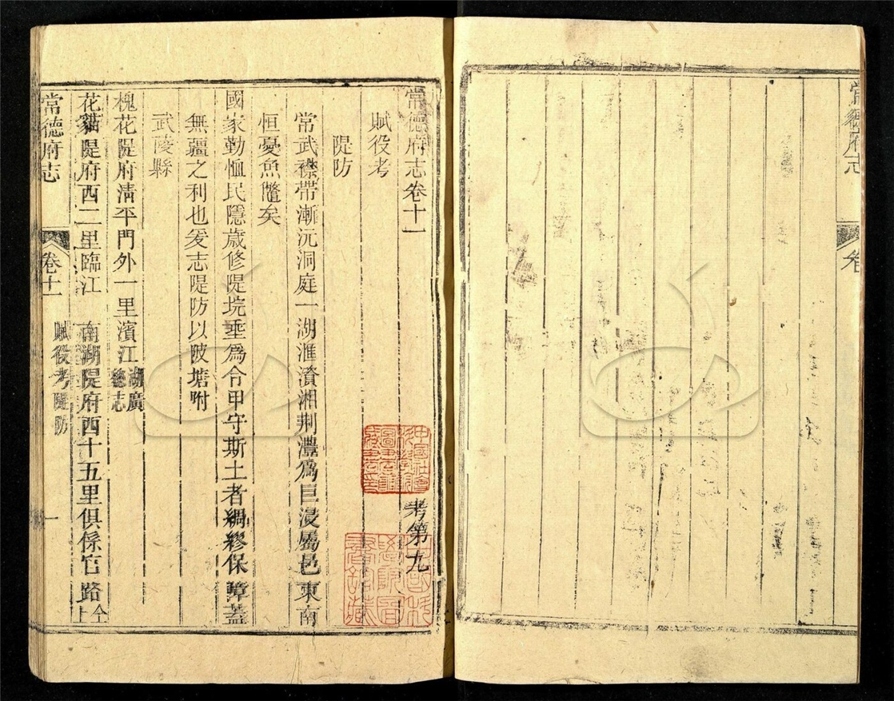 常德府志卷十一 考第九
賦役考
隄防
常武襟帶漸沅洞庭一湖滙濱湘荆澧爲巨浸屬邑東南
恒憂魚鼈矣
國家勤恤民隱歳修隄垸垂爲令甲守斯土者綢繆保障蓋
無疆之利也爰志隄防以陂塘附
武陵縣
槐花隄府淸平門外一里濱江湖廣總志
花貓隄府西二里臨江 南湖隄府西十五里俱係官路仝上
常德府志 卷十一 賦役考隄防 一
常德府志 卷